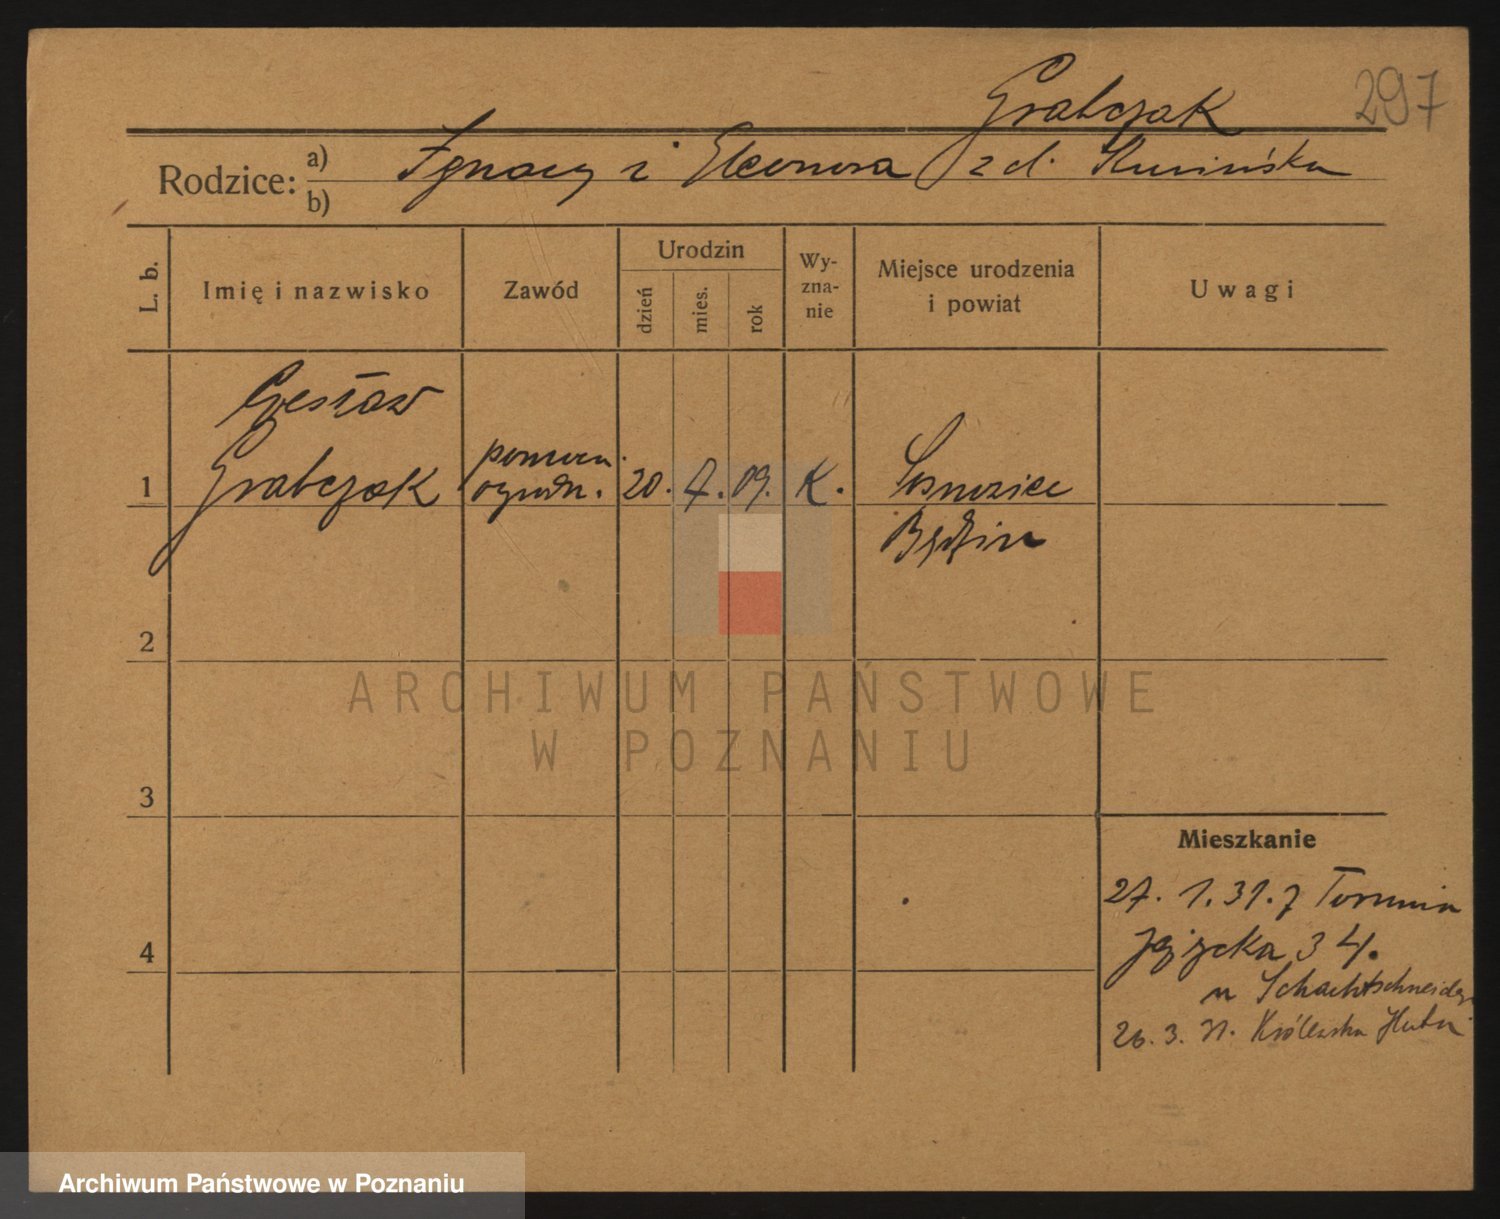 297
Grabczak
Rodzice: a) Ignacy i Eleonora z d.
b)
L. b.
Imię i nazwisko
Zawód
Urodzin
dzień
mies.
rok
Wy-
zna-
nie
Miejsce urodzenia
i powiat
Uwagi
Czesław
Grabczak
1
pomocn.
ogrodn.
20. 7. 09. K.
Sosnowice
Będzin
2
3
4
Mieszkanie
27. 1. 31. z Torunia
34.
u Schachtschneider
26. 3. 31. Królewska Huta
ARCHIWUM PAŃSTWOWE
W POZNANIU
Archiwum Państwowe w Poznaniu